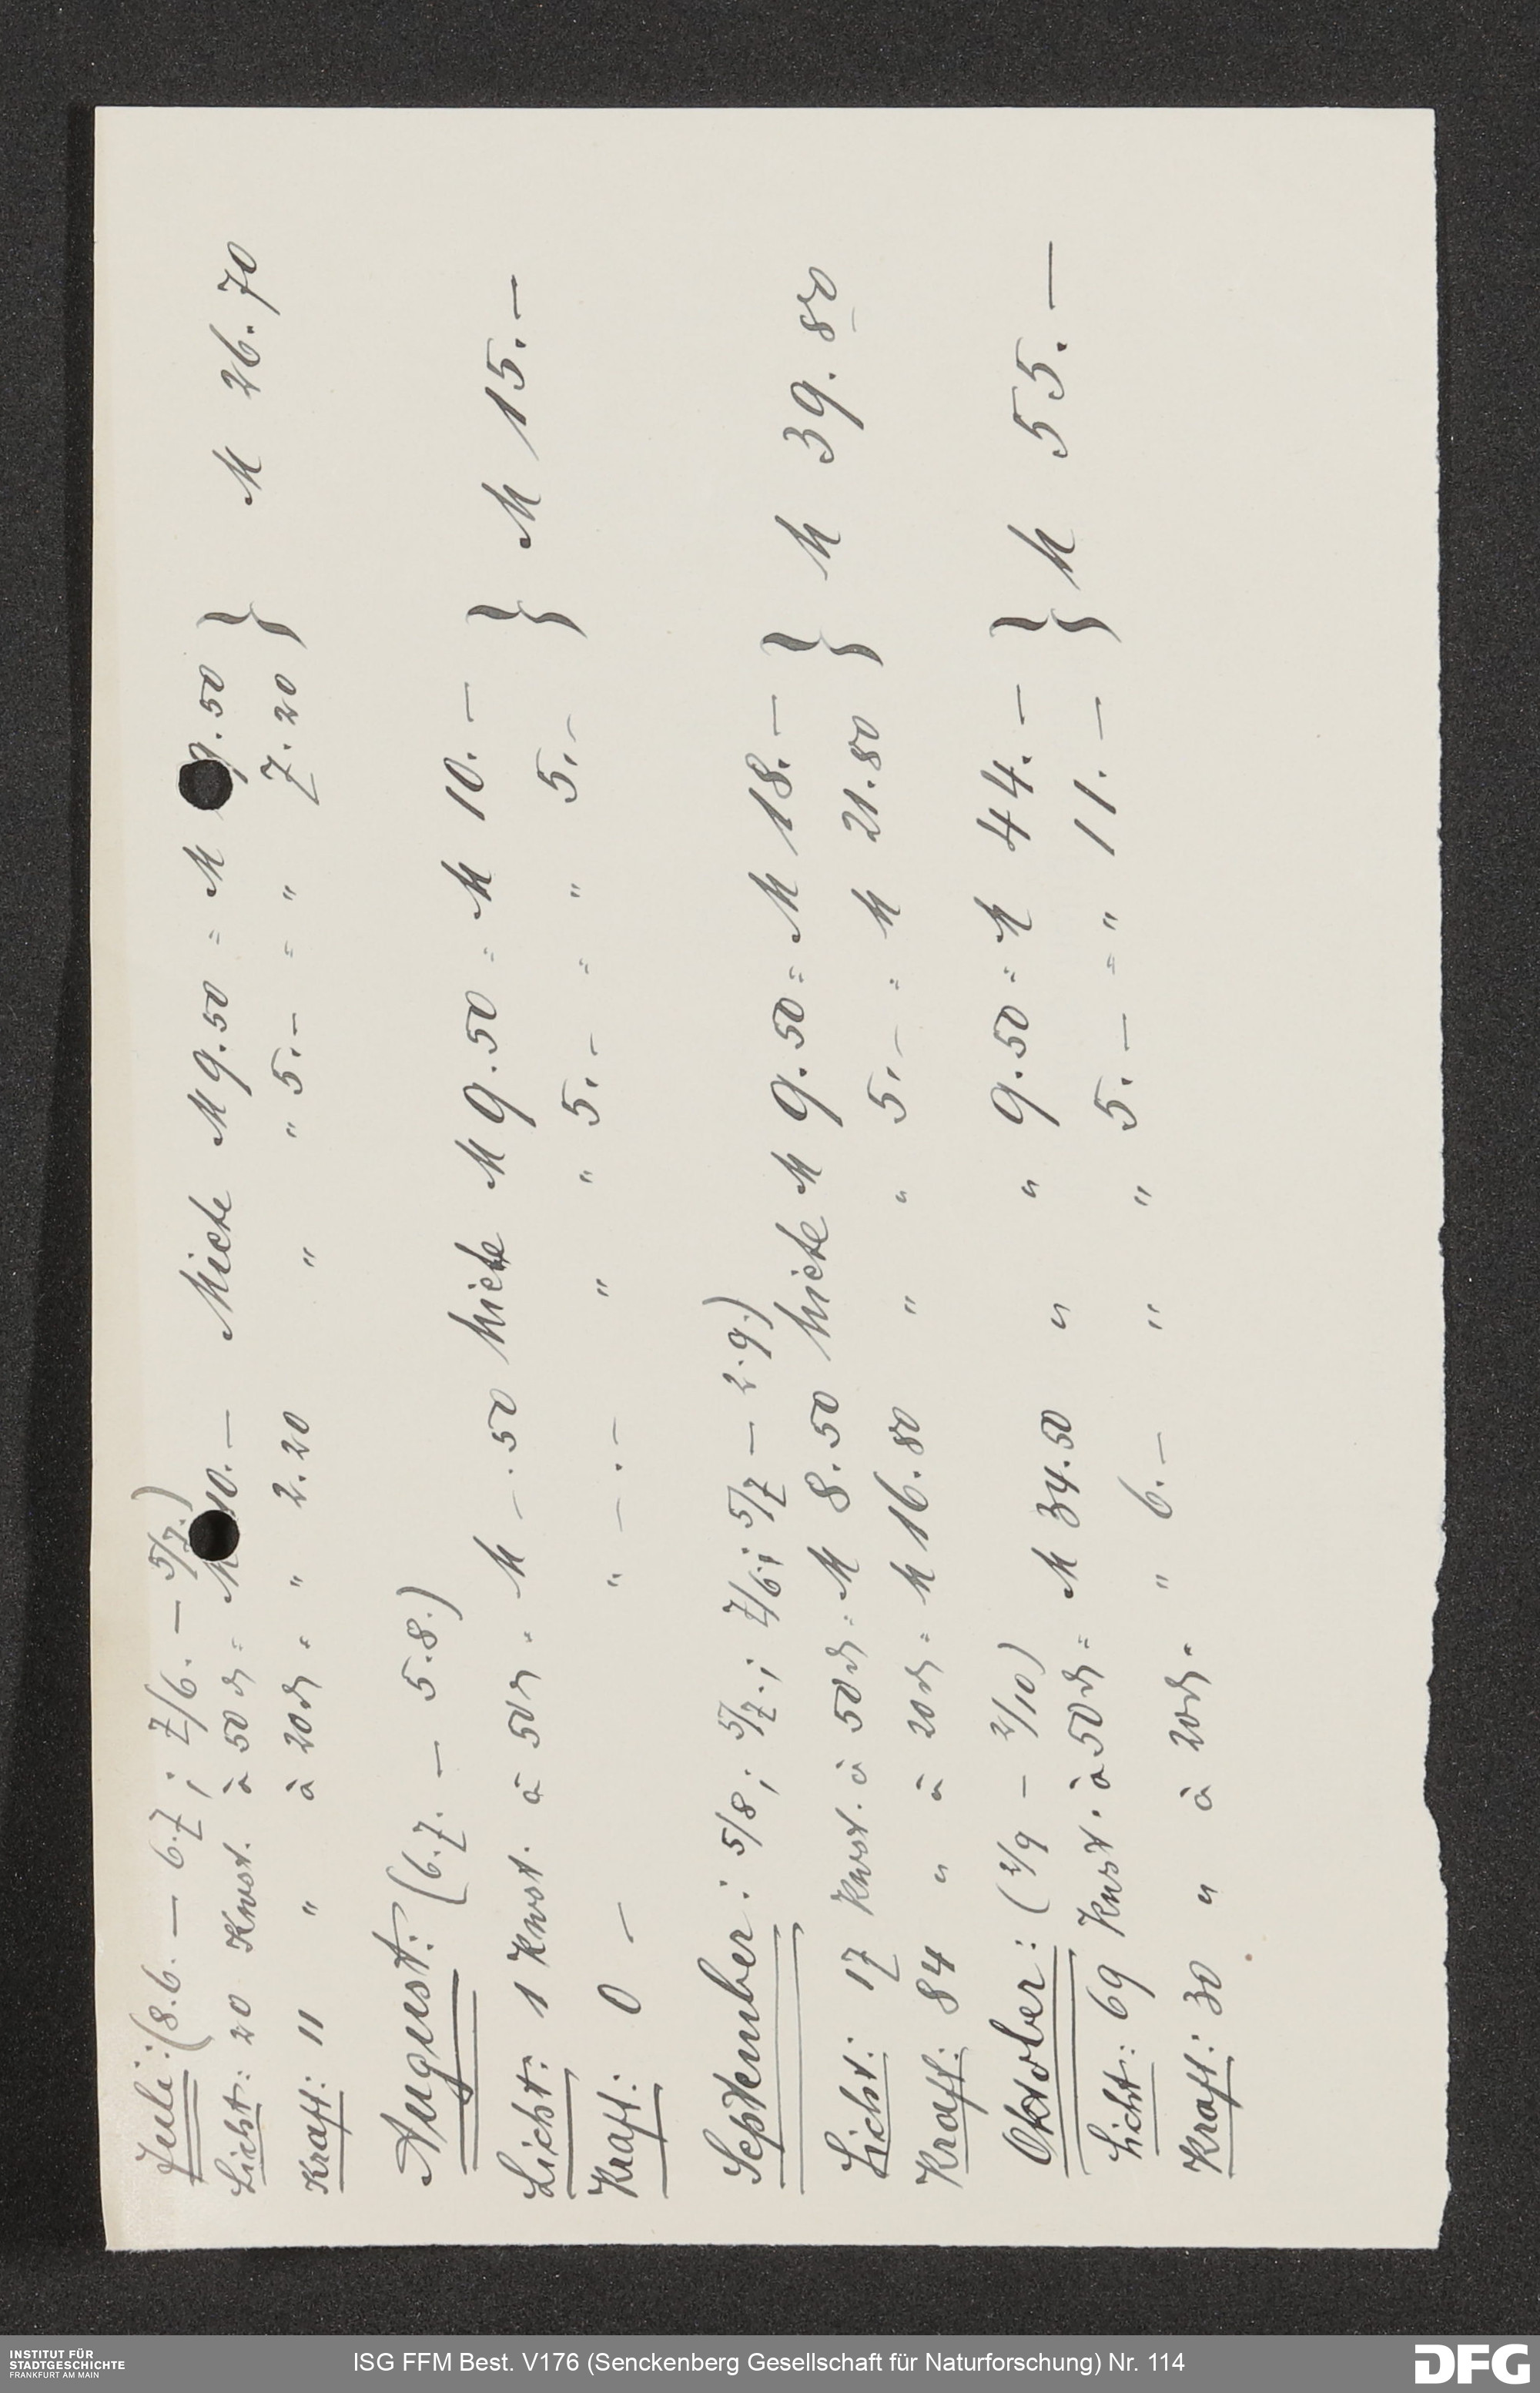 Juli: (8.6. — 6.7; 7/6. — 5/7.)
Licht: 20 Kwst. à 50 ₰ = M 10.— Miete M 9.50 = M 9.50 }
Kraft: 11 " à 20 ₰ = " 2.20 " " 5.— = " 7.20 } M 26.70
August: (6.7. — 5.8.)
Licht: 1 Kwst. à 50 ₰ = M —.50 Miete M 9.50 = M 10.— }
Kraft: 0 — " —.— " " 5.— = " 5.— } M 15.—
September: 5/8; 5/7.; 7/6.; 5/7 — 2.9.)
Licht: 17 Kwst. à 50 ₰ = M 8.50 Miete M 9.50 = M 18.— }
Kraft: 84 " à 20 ₰ = M 16.80 " " 5.— = M 21.80 } M 39.80
Oktober: (2/9 — 2/10)
Licht: 69 Kwst. à 50 ₰ = M 34.50 " " 9.50 = M 44.— }
Kraft: 30 " à 20 ₰ = " 6.— " " 5.— = " 11.— } M 55.—
INSTITUT FÜR
STADTGESCHICHTE
FRANKFURT AM MAIN
ISG FFM Best. V176 (Senckenberg Gesellschaft für Naturforschung) Nr. 114
DFG